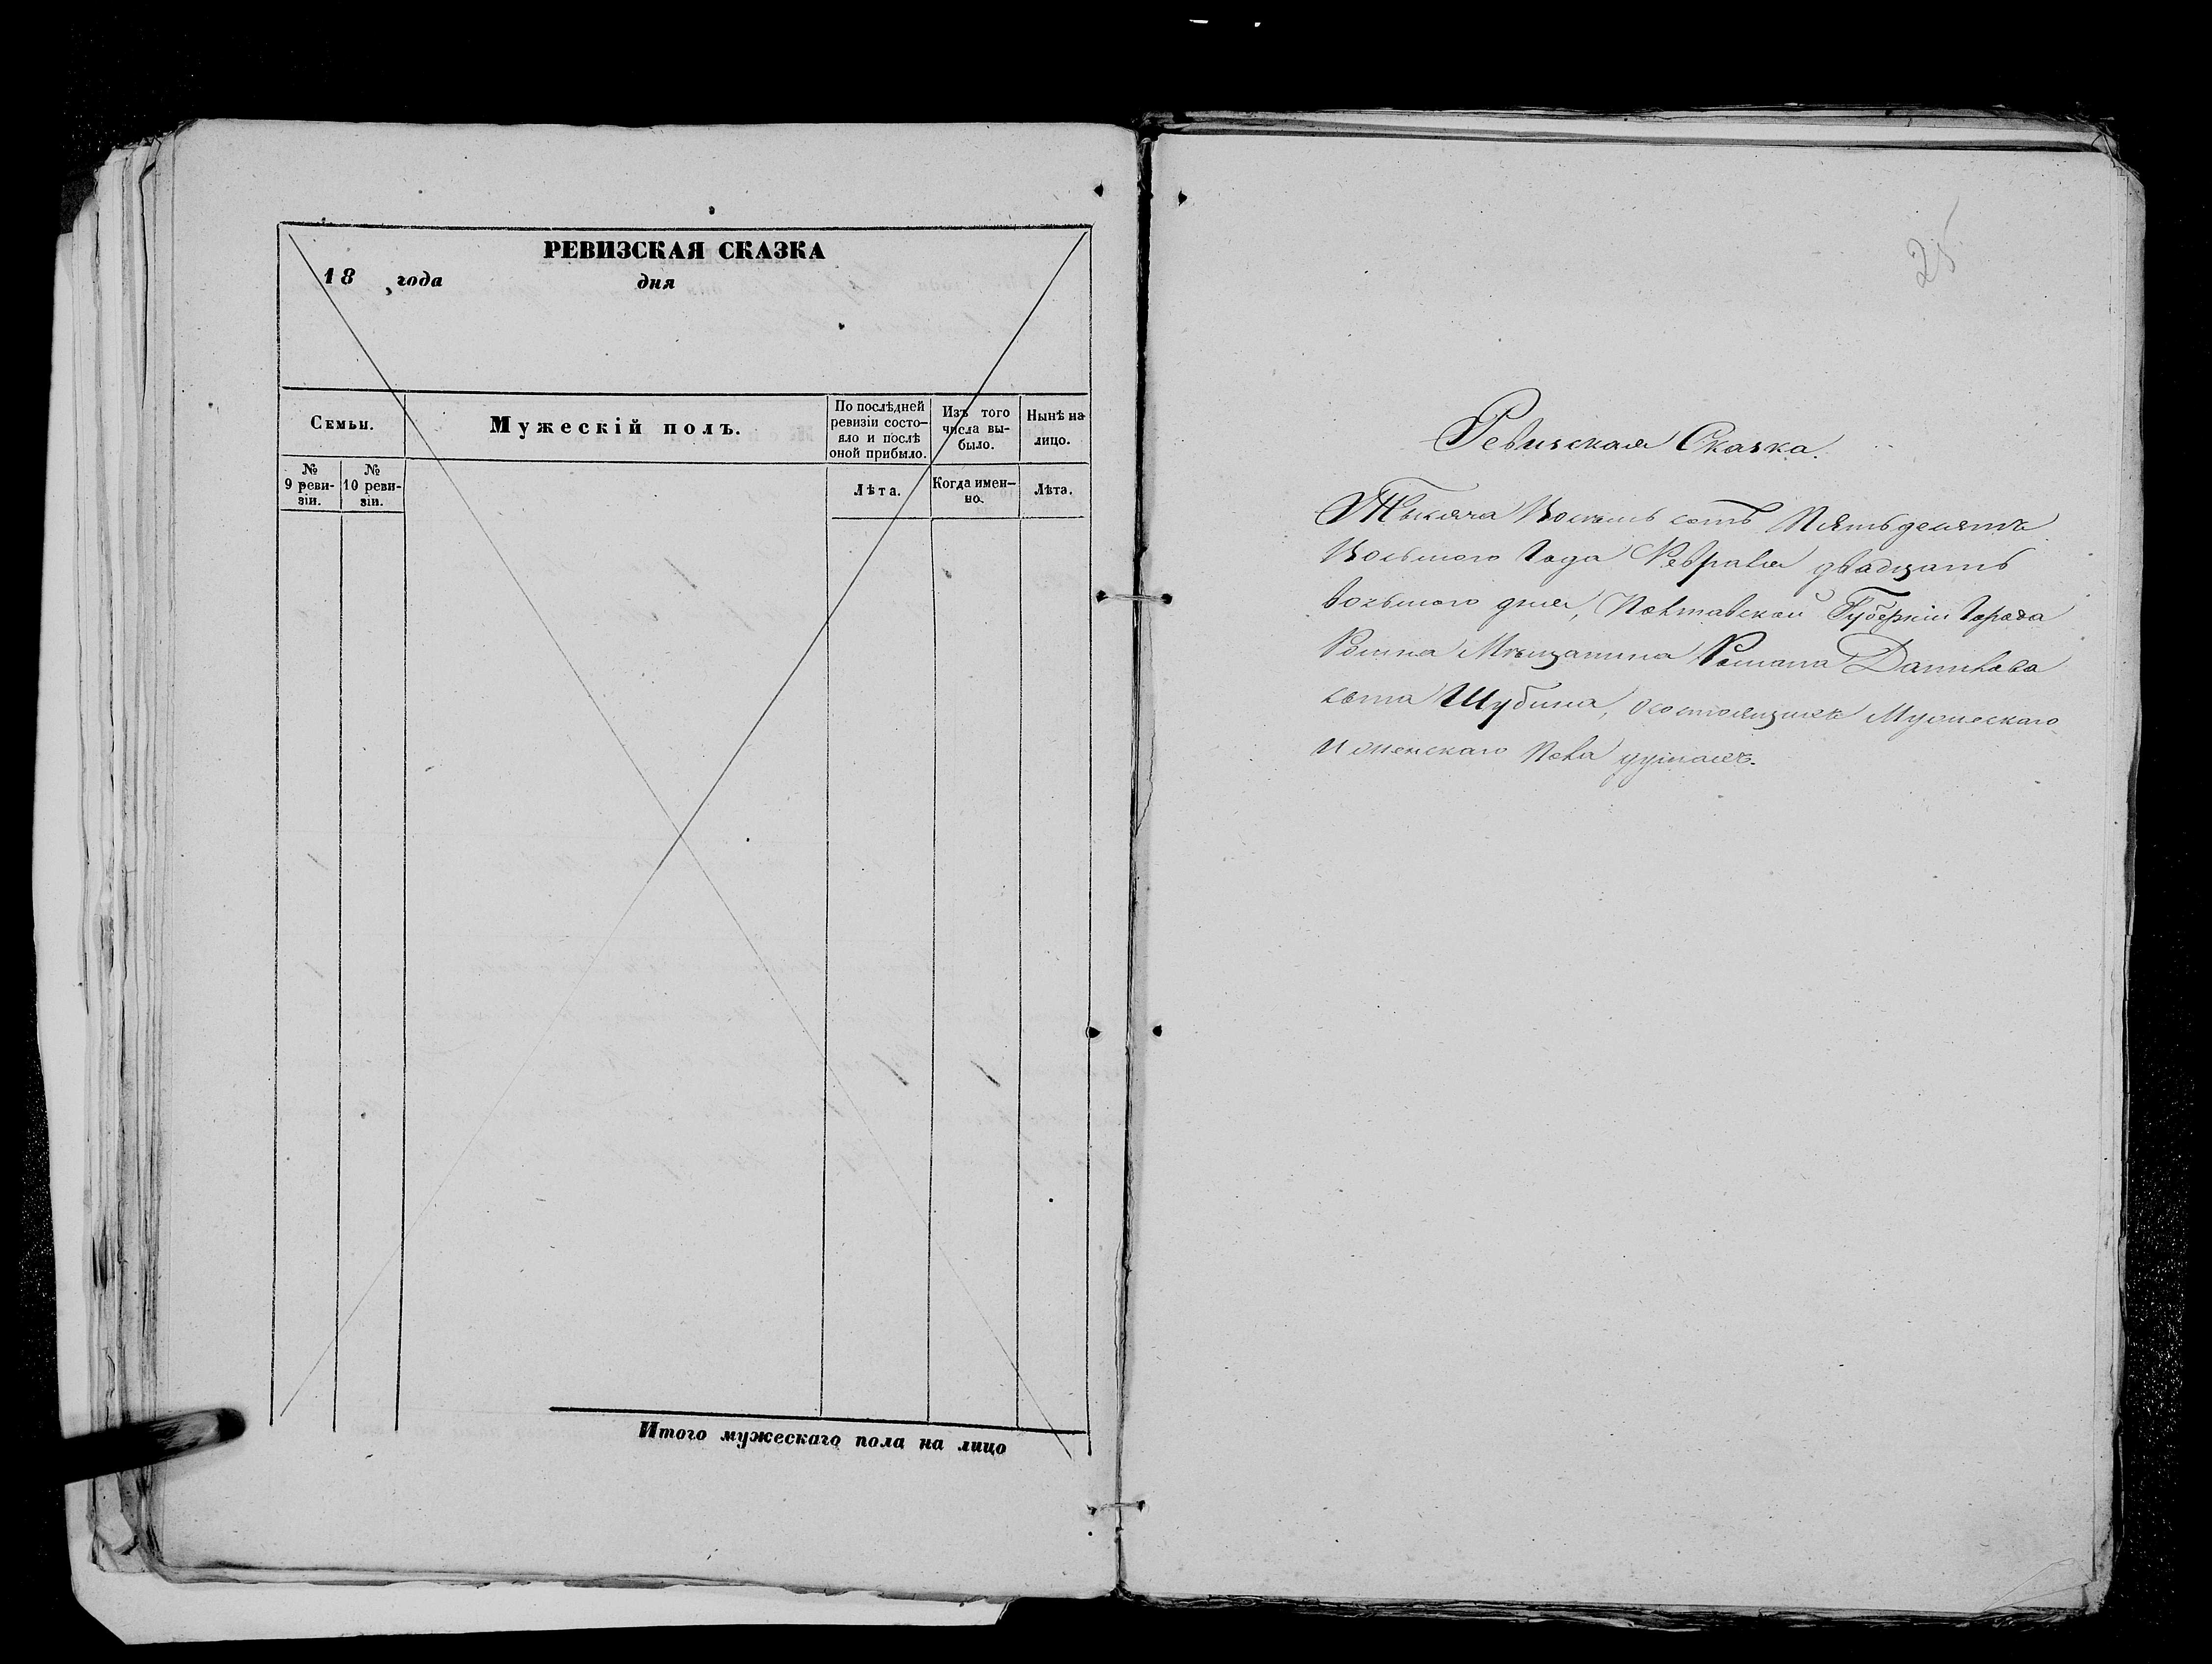 РЕВИЗСКАЯ СКАЗКА
18 года дня
Семьи.
Мужескій полъ.
По послѣдней
ревизіи состо-
яло и послѣ
оной прибыло.
Изъ того
числа вы-
было.
Нынѣ на
лицо.
№
9 реви-
зіи.
№
10 реви-
зіи.
Лѣта.
Когда имен-
но.
Лѣта.
Итого мужескаго пола на лицо
25
Ревизская Сказка.
Тысяча Восемь сотъ Пятьдесятъ
Восьмого Года Февраля двадцать
восьмого дня, Полтавской Губерніи Города
Ромна Мѣщанина Романа Данилова
сына Шубина, о состоящихъ Мужескаго
И женскаго Пола душахъ.